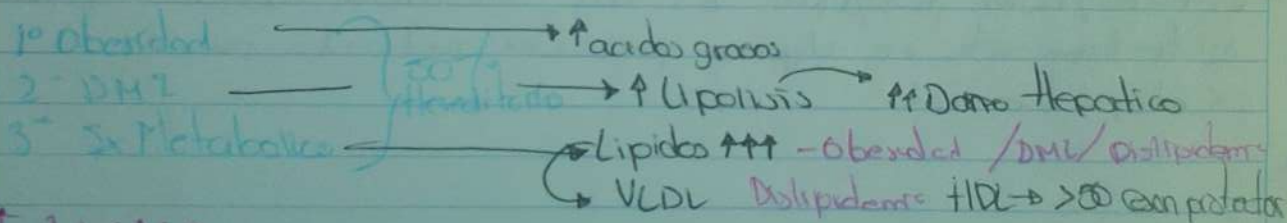 1º Obesidad → ↑ acidos grasos
2º DM2 → ↑ Lipolisis → ↑↑ Daño Hepatico
3º Sx Metabolico → Lipidos ↑↑↑ - Obesidad / DM2 / Dislipidemia
→ VLDL Dislipidemia HDL →